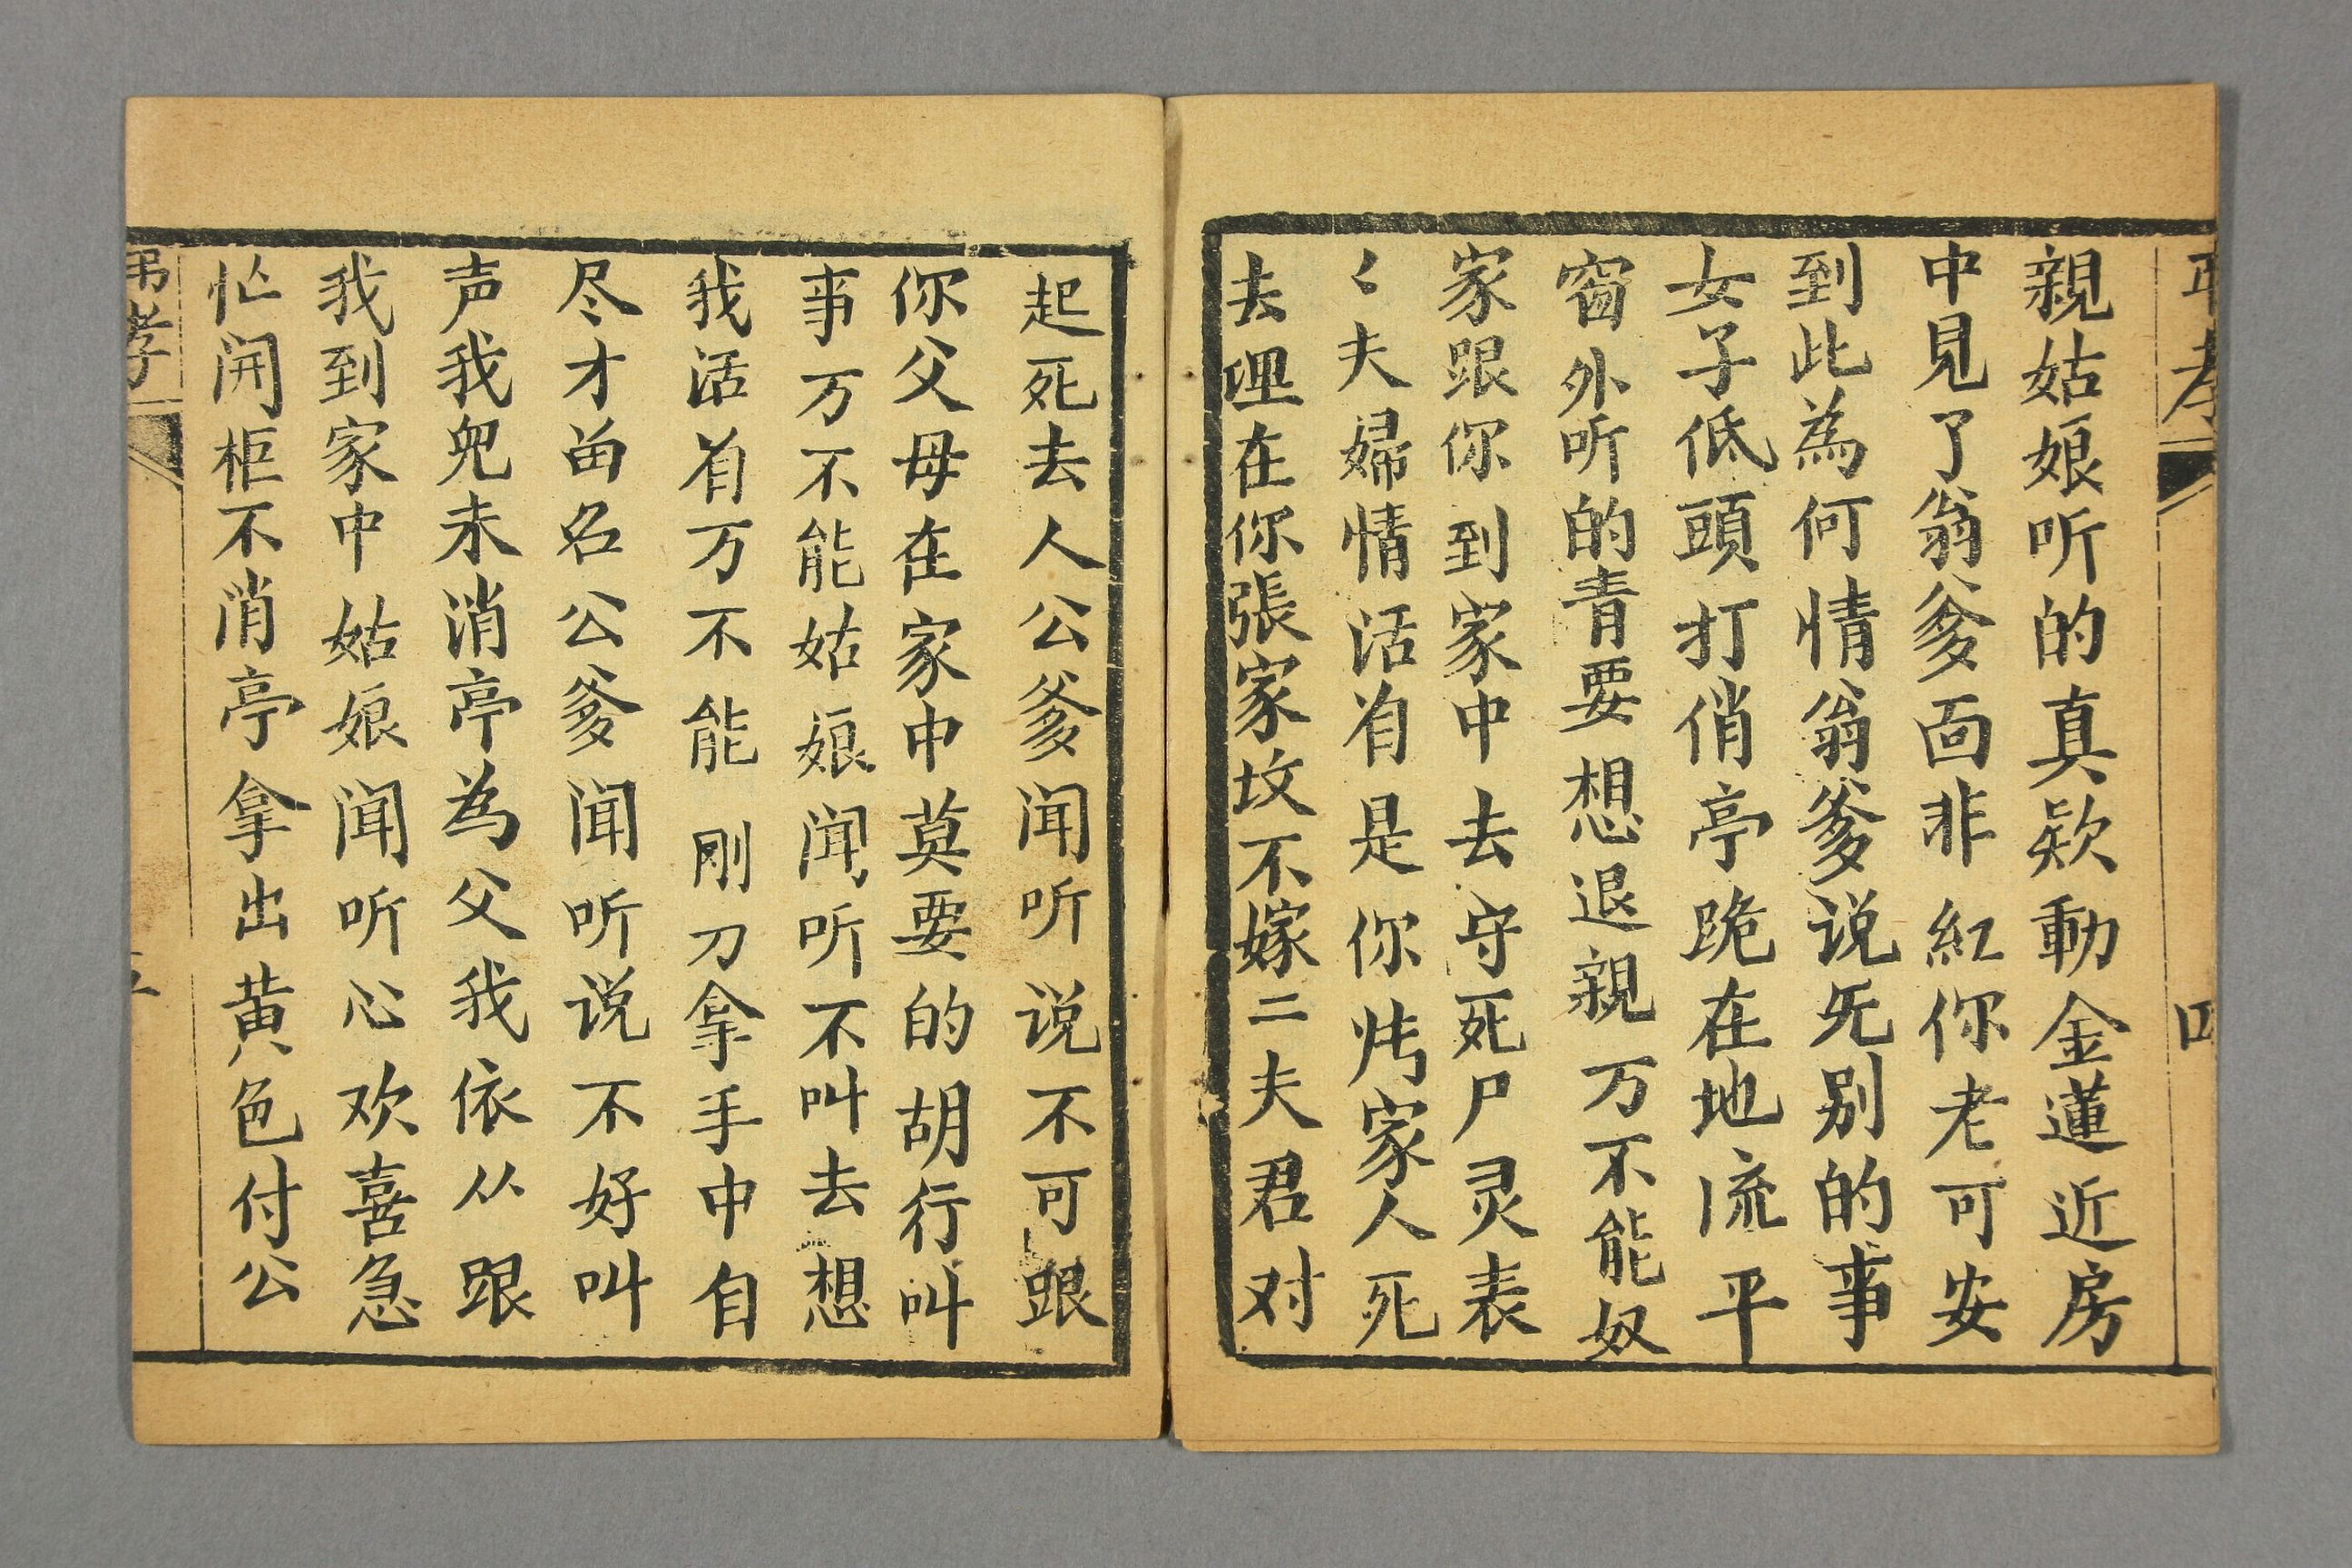 親姑娘听的真欵動金蓮近房
中見了翁爹面非紅你老可安
到此為何情翁爹说旡别的事
女子低頭打俏亭跪在地流平
窗外听的青要想退親万不能奴
家跟你到家中去守死尸灵表
〻夫婦情活肖是你炉家人死
去埋在你張家坟不嫁二夫君对
起死去人公爹闻听说不可跟
你父母在家中莫要的胡行叫
事万不能姑娘闻听不叫去想
我活肖万不能刚刀拿手中自
尽才苗名公爹闻听说不好叫
声我兜未消亭為父我依从跟
我到家中姑娘闻听心欢喜急
忙開柜不消亭拿出黄色付公
吊孝